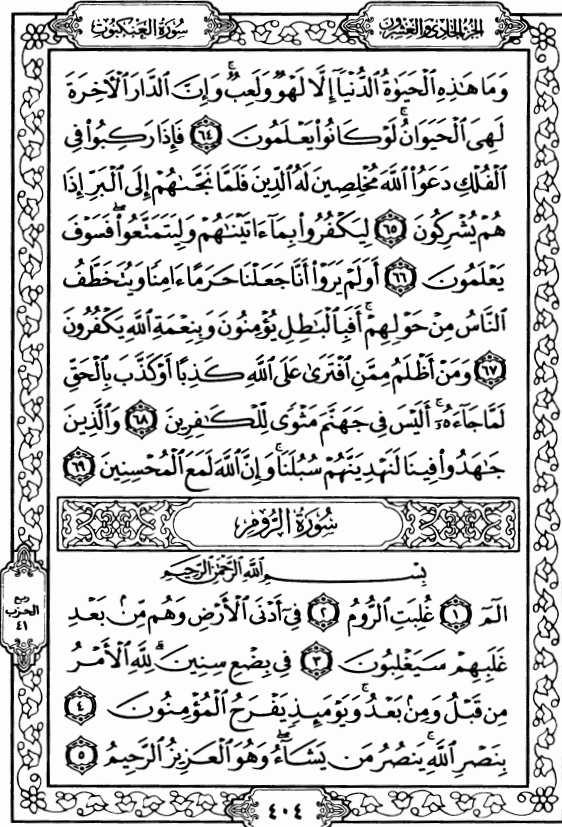 سورة العنكبوت
الجزء الحادي والعشرون
وَمَا هَٰذِهِ الْحَيَوٰةُ الدُّنْيَآ إِلَّا لَهْوٌ وَلَعِبٌ ۚ وَإِنَّ الدَّارَ الْآخِرَةَ
لَهِيَ الْحَيَوَانُ ۚ لَوْ كَانُوا يَعْلَمُونَ ٦٤ فَإِذَا رَكِبُوا فِي
الْفُلْكِ دَعَوُا اللَّهَ مُخْلِصِينَ لَهُ الدِّينَ فَلَمَّا نَجَّىٰهُمْ إِلَى الْبَرِّ إِذَا
هُمْ يُشْرِكُونَ ٦٥ لِيَكْفُرُوا بِمَآ ءَاتَيْنَٰهُمْ وَلِيَتَمَتَّعُوا ۖ فَسَوْفَ
يَعْلَمُونَ ٦٦ أَوَلَمْ يَرَوْا أَنَّا جَعَلْنَا حَرَمًا ءَامِنًا وَيُتَخَطَّفُ
النَّاسُ مِنْ حَوْلِهِمْ ۚ أَفَبِالْبَٰطِلِ يُؤْمِنُونَ وَبِنِعْمَةِ اللَّهِ يَكْفُرُونَ
٦٧ وَمَنْ أَظْلَمُ مِمَّنِ افْتَرَىٰ عَلَى اللَّهِ كَذِبًا أَوْ كَذَّبَ بِالْحَقِّ
لَمَّا جَآءَهُۥٓ ۚ أَلَيْسَ فِي جَهَنَّمَ مَثْوًى لِّلْكَٰفِرِينَ ٦٨ وَالَّذِينَ
جَٰهَدُوا فِينَا لَنَهْدِيَنَّهُمْ سُبُلَنَا ۚ وَإِنَّ اللَّهَ لَمَعَ الْمُحْسِنِينَ ٦٩
سُورَةُ الرُّومِ
بِسْمِ اللَّهِ الرَّحْمَٰنِ الرَّحِيمِ
الٓمٓ ١ غُلِبَتِ الرُّومُ ٢ فِيٓ أَدْنَى الْأَرْضِ وَهُم مِّنۢ بَعْدِ
غَلَبِهِمْ سَيَغْلِبُونَ ٣ فِي بِضْعِ سِنِينَ ۗ لِلَّهِ الْأَمْرُ
مِن قَبْلُ وَمِنۢ بَعْدُ ۚ وَيَوْمَئِذٍ يَفْرَحُ الْمُؤْمِنُونَ ٤
بِنَصْرِ اللَّهِ ۚ يَنصُرُ مَن يَشَآءُ ۖ وَهُوَ الْعَزِيزُ الرَّحِيمُ ٥
ربع
الحزب
٤١
٤٠٤